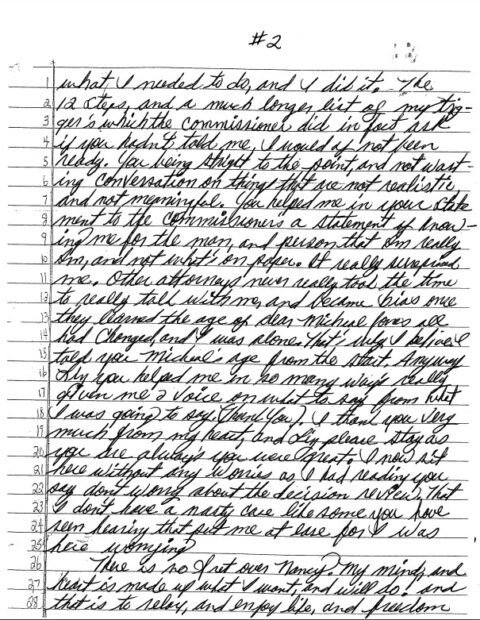 #2
1 what I needed to do, and I did it. The
2 12 steps, and a much longer list of my trig-
3 ger's which the commissioner did in fact ask
4 if you hadn't told me, I would of not been
5 ready. You being straight to the point, and not wast-
6 ing conversation on things that are not realistic,
7 and not meaningful. You helped me in your state
8 ment to the commissioner's a statement of know-
9 ing me for the man, and person that Im really
10 Im, and not what's on paper. It really surprised
11 me. Other attorneys never really took the time
12 to really talk with me, and became bias once
13 they learned the age of dear Micheal Jones all
14 had Changed, and I was alone. That's why I believe I
15 told you Micheal's age from the start. Anyway
16 you helped me in so many ways really
17 given me a voice on what to say from what
18 I was going to say. (Thank You). I thank you very
19 much from my heart, and please stay as
20 you are always you were great. I now sit
21 here without any worries as I had reading you
22 say dont worry about the decision review, that
23 I dont have a nasty case like some you have
24 sem hearing that put me at ease for I was
25 here worrying
26 There is no fret over Nancy. My mind, and
27 heart is made up what I want, and will do. and
28 that is to relax, and enjoy life, and freedom